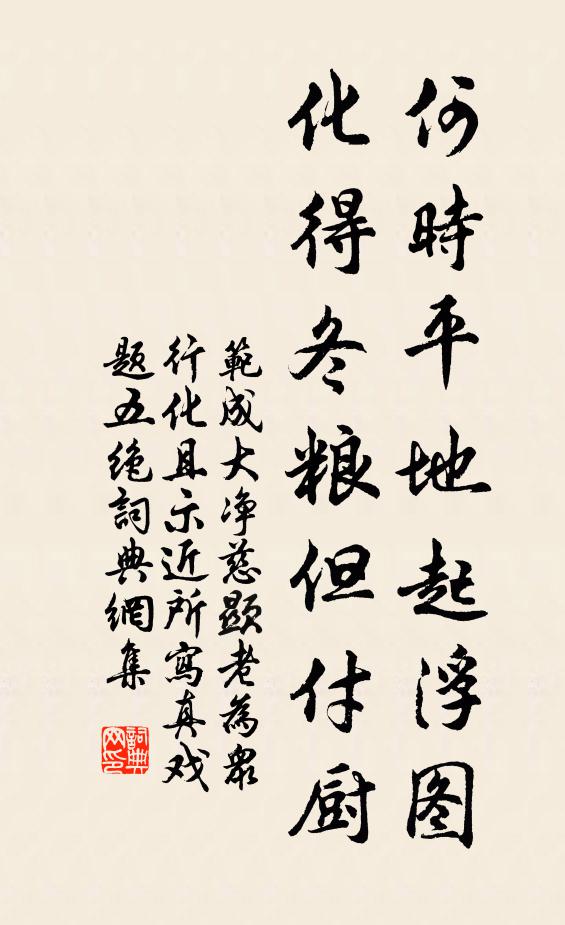 何時平地起浮图
化得冬粮但付厨
範成大净慈顯老為眾
行化且示近所寫真戏
题五绝詞典網集
詞典
网印